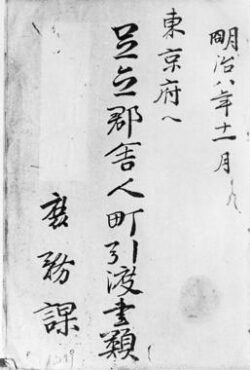 明治八年十一月
東京府へ
足立郡舎人町引渡書類
庶務課